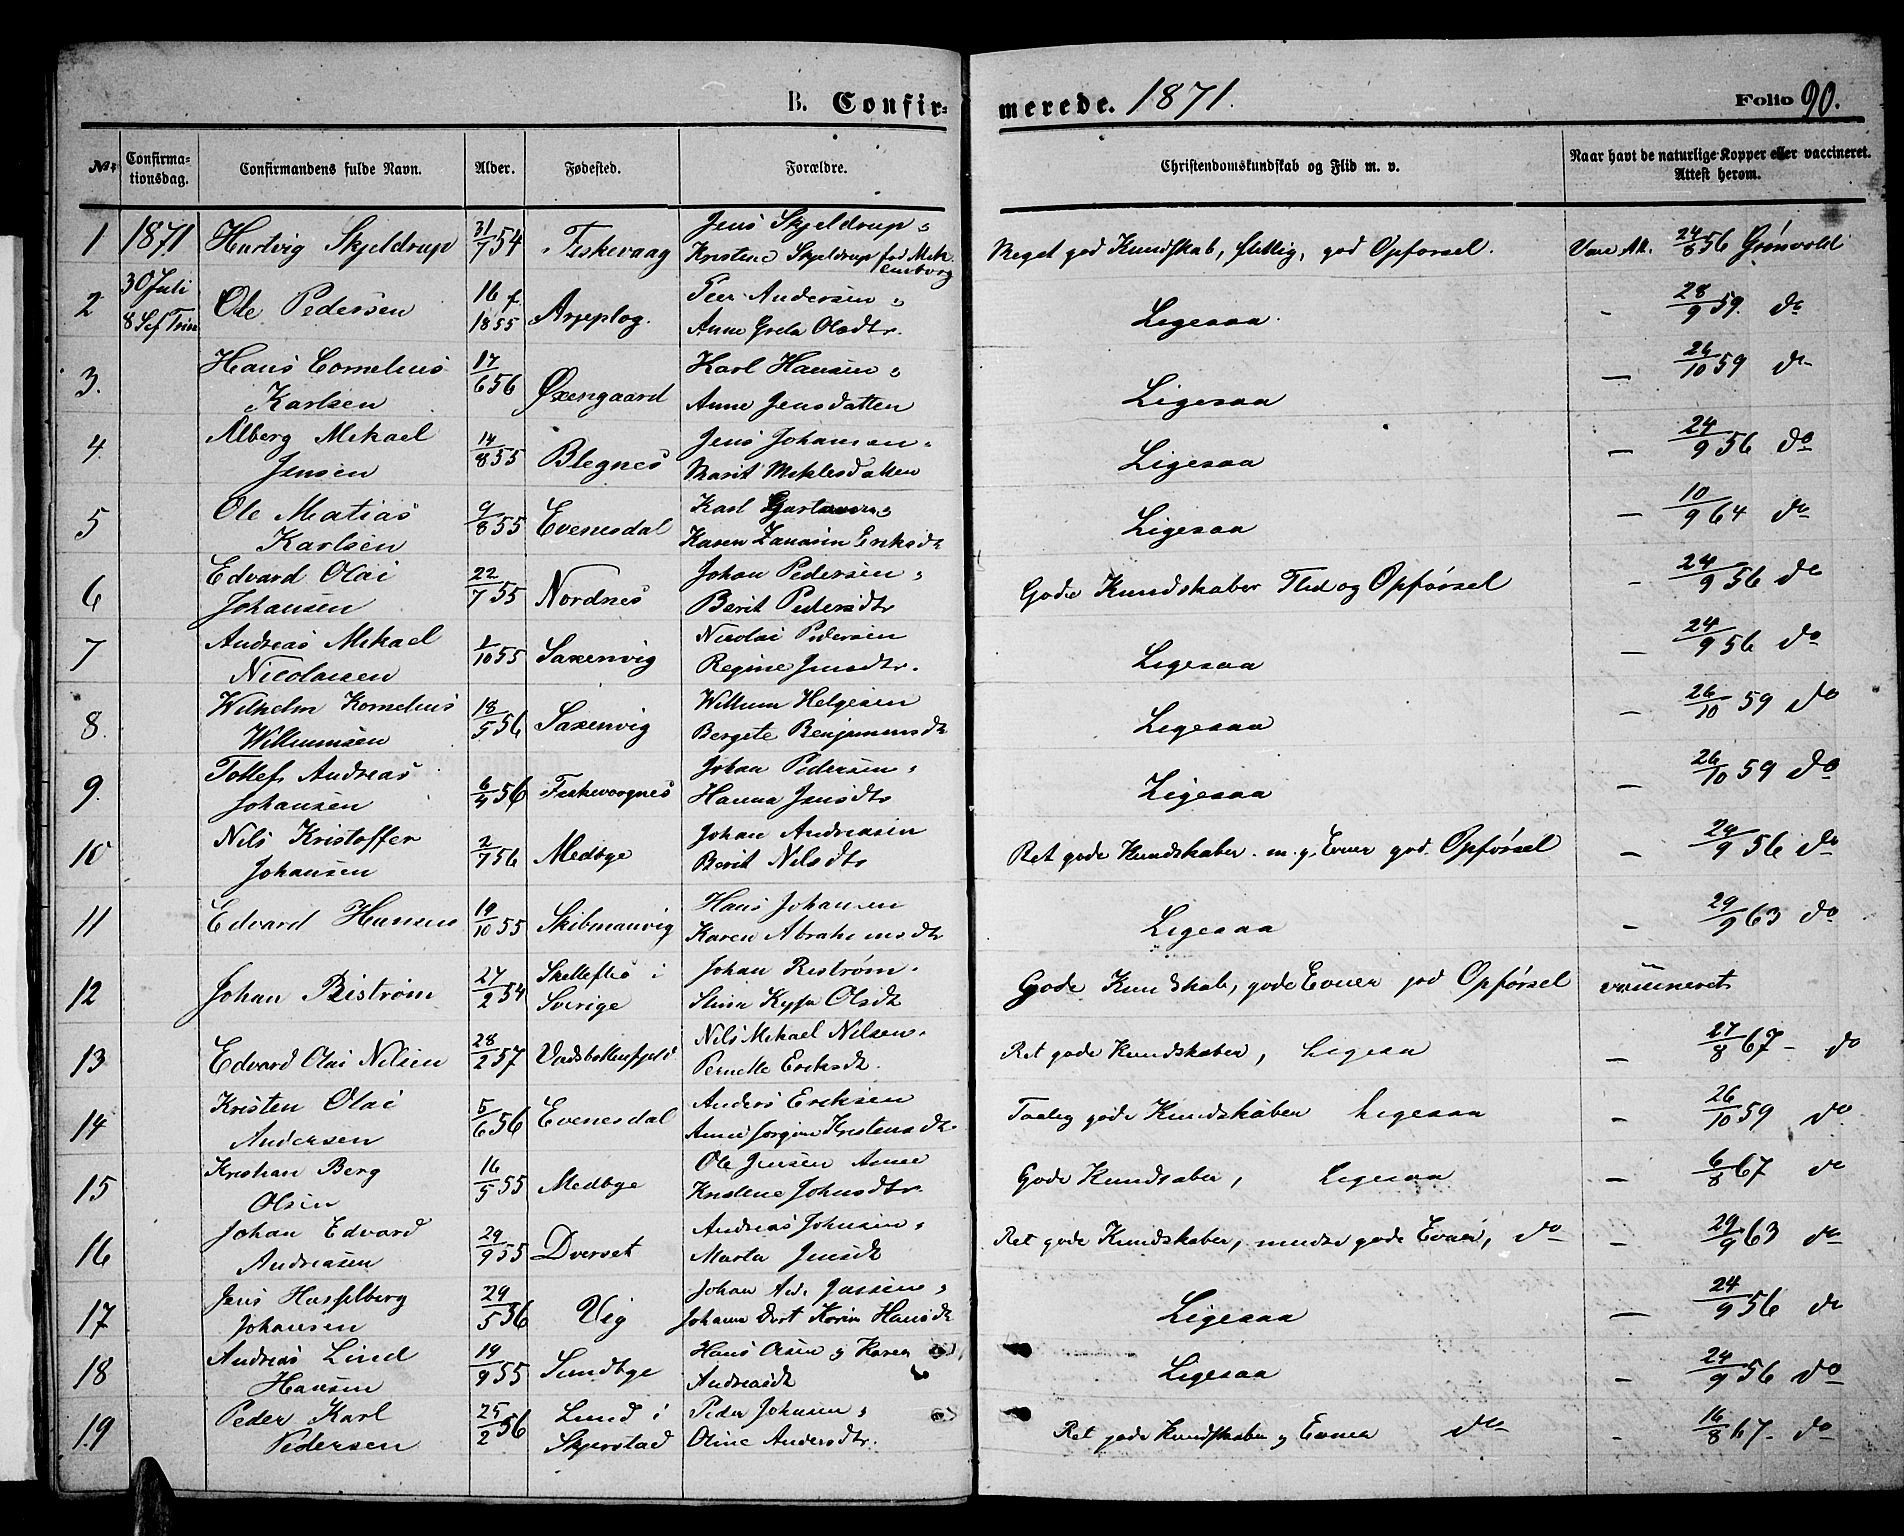 B. Confir-
merede. 1871.
Folio 90.
No. Confirma-tionsdag. Confirmandens fulde Navn. Alder. Fødested. Forældre. Christendomskundskab og Flid m. v. Naar havt de naturlige Kopper eller vaccineret. Attest herom.
1 1871 Hartvig Skjeldrup 31/7 54 Fiskevaag Jens Skjeldrup Kristene Skjeldrup fød Meget god Kundskab, flittig, god Opførsel. Vac. At. 24/8 56 Grønvold
2 30 Juli 8 Sef Trin Ole Pedersen 16 1855 Arjeplog. Peer Andersen Anne Greta Olsdtr. Ligesaa. - 28/9 59. do
3. Hans Cornelius Karlsen 17/6 56 Øxengaard Karl Hansen Anne Jensdatten Ligesaa — 26/10 59 do
4. Alberg Mikael Jensen 14/8 55 Blegnes Jens Johansen Marit Mikkelsdatten Ligesaa — 24/9 56 do
5 Ole Matias Karlsen 9/8 55 Evenesdal Karl Karen Eriksdt Ligesaa — 10/9 64 do
6 Edvard Olai Johansen 22/7 55 Nordnes Johan Pedersen Berit Pedersdtr Gode Kundskaber Flid og Opførsel — 24/9 56 do
7 Andreas Mikael Nicolaisen 1/10 55 Saxenvig Nicolai Pedersen Regine Jensdtr. Ligesaa — 24/9 56 do
8. Wilhelm Kornelius Willumsen 18/5 56 Saxenvig Willum Helgesen Bergete Benjaminsdt Ligesaa — 26/10 59 do
9. Tollef Andreas Johansen 6/4 56 Fiskevaagnes Johan Pedersen Hanna Jensdtr Ligesaa — 26/10 59 do
10 Nils Kristoffer Johansen 2/7 56 Medbye Johan Andreasen Berit Nilsdtr Ret gode Kundskaber. m. g. Evner god Opførsel — 24/9 56 do
11 Edvard Hansen 19/10 55 Skibmanvig Hans Johansen Karen Abrahamsdtr Ligesaa — 29/9 63 do
12 Johan Riström 27/2 54 Skelleftes i Sverige Johan Riström. Stina Olsdt Gode Kundskab, gode Evner god Opførsel vaccineret
13 Edvard Olai Nilsen 28/2 57 Nils Mikael Nilsen. Pernelle Eriksdt. Ret gode Kundskaber, Ligesaa — 27/8 67- do
14 Kristen Olai Andersen 5/6 56 Evenesdal Anders Eriksen Anne Jorgine Kristensdt. Taalig gode Kundskaber Ligesaa — 26/10 59 do
15 Kristian Berg Olsen 16/5 55 Medbye Ole Jensen Anne Kristene Johnsdtr. Gode Kundskaber, Ligesaa — 6/8 67 do
16 Johan Edvard Andreasen 29/9 55 Dverset Andreas Johnsen Marta Jensdt Ret gode Kundskaber, mindre gode Evner, do — 29/9 63 do
17 Jens Hasselberg Johansen 29/5 56 Vig Johan Johanna Karin Hansdt Ligesaa — 24/9 56 do
18 Andreas Lind Hansen 19/9 55 Sundbye Hans Olsen og Karen Andreasdt Ligesaa — 24/9 56 do
19 Peder Karl Pedersen 25/2 56 Lund i Skjerstad Peder Johnsen Oline Andersdtr. Ret gode Kundskaber og Evner do - 16/8 67- do